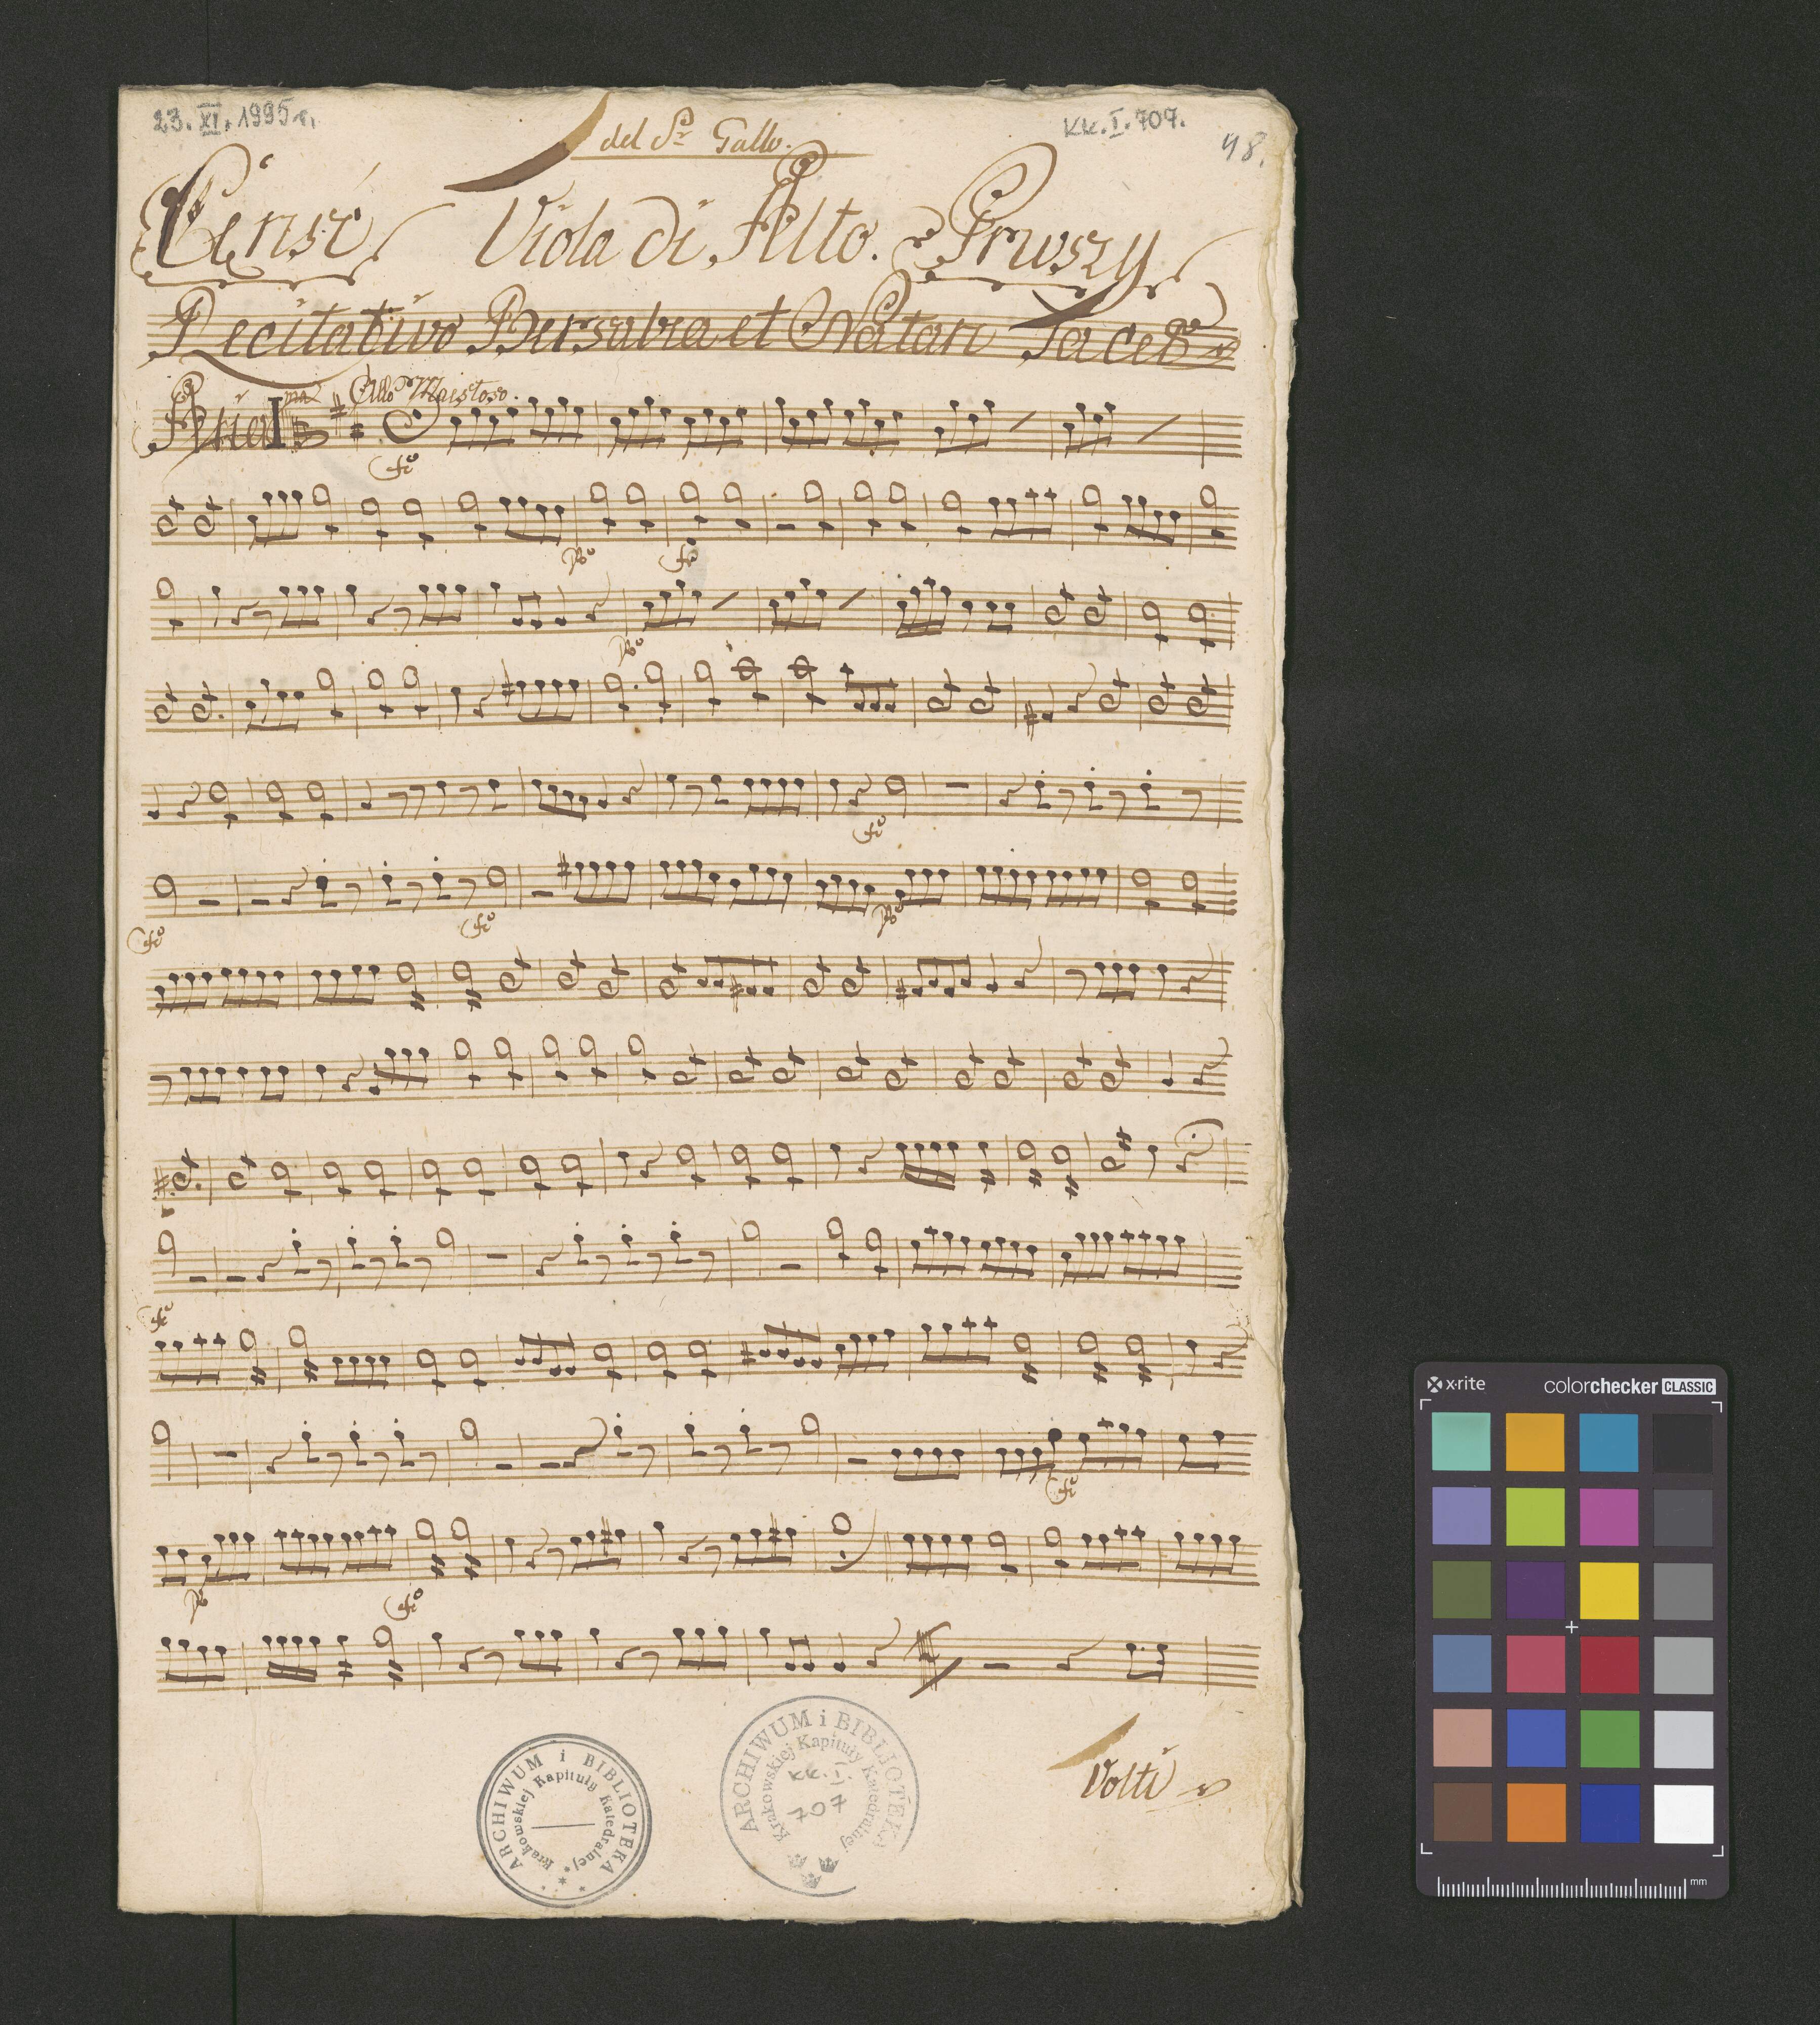 23. XI. 1995 r.
KK. I. 707.
del Sr Gallo.
48.
Viola di Alto.
Recitativo Bersabea et Natan Tacet
Aria I ma Allo Maistoso.
fo
Po
fo
Po
fo
fo
fo
Po
fo
fo
Po
fo
Volti
ARCHIWUM i BIBLIOTEKA
Krakowskiej Kapituły Katedralnej
ARCHIWUM i BIBLIOTEKA
Krakowskiej Kapituły Katedralnej
KK. I.
707
x·rite
colorchecker CLASSIC
mm